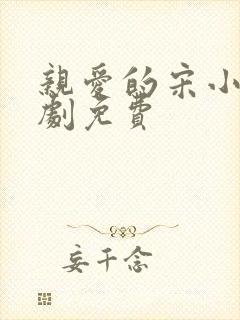 親愛的宋小
劇免費
妄千念